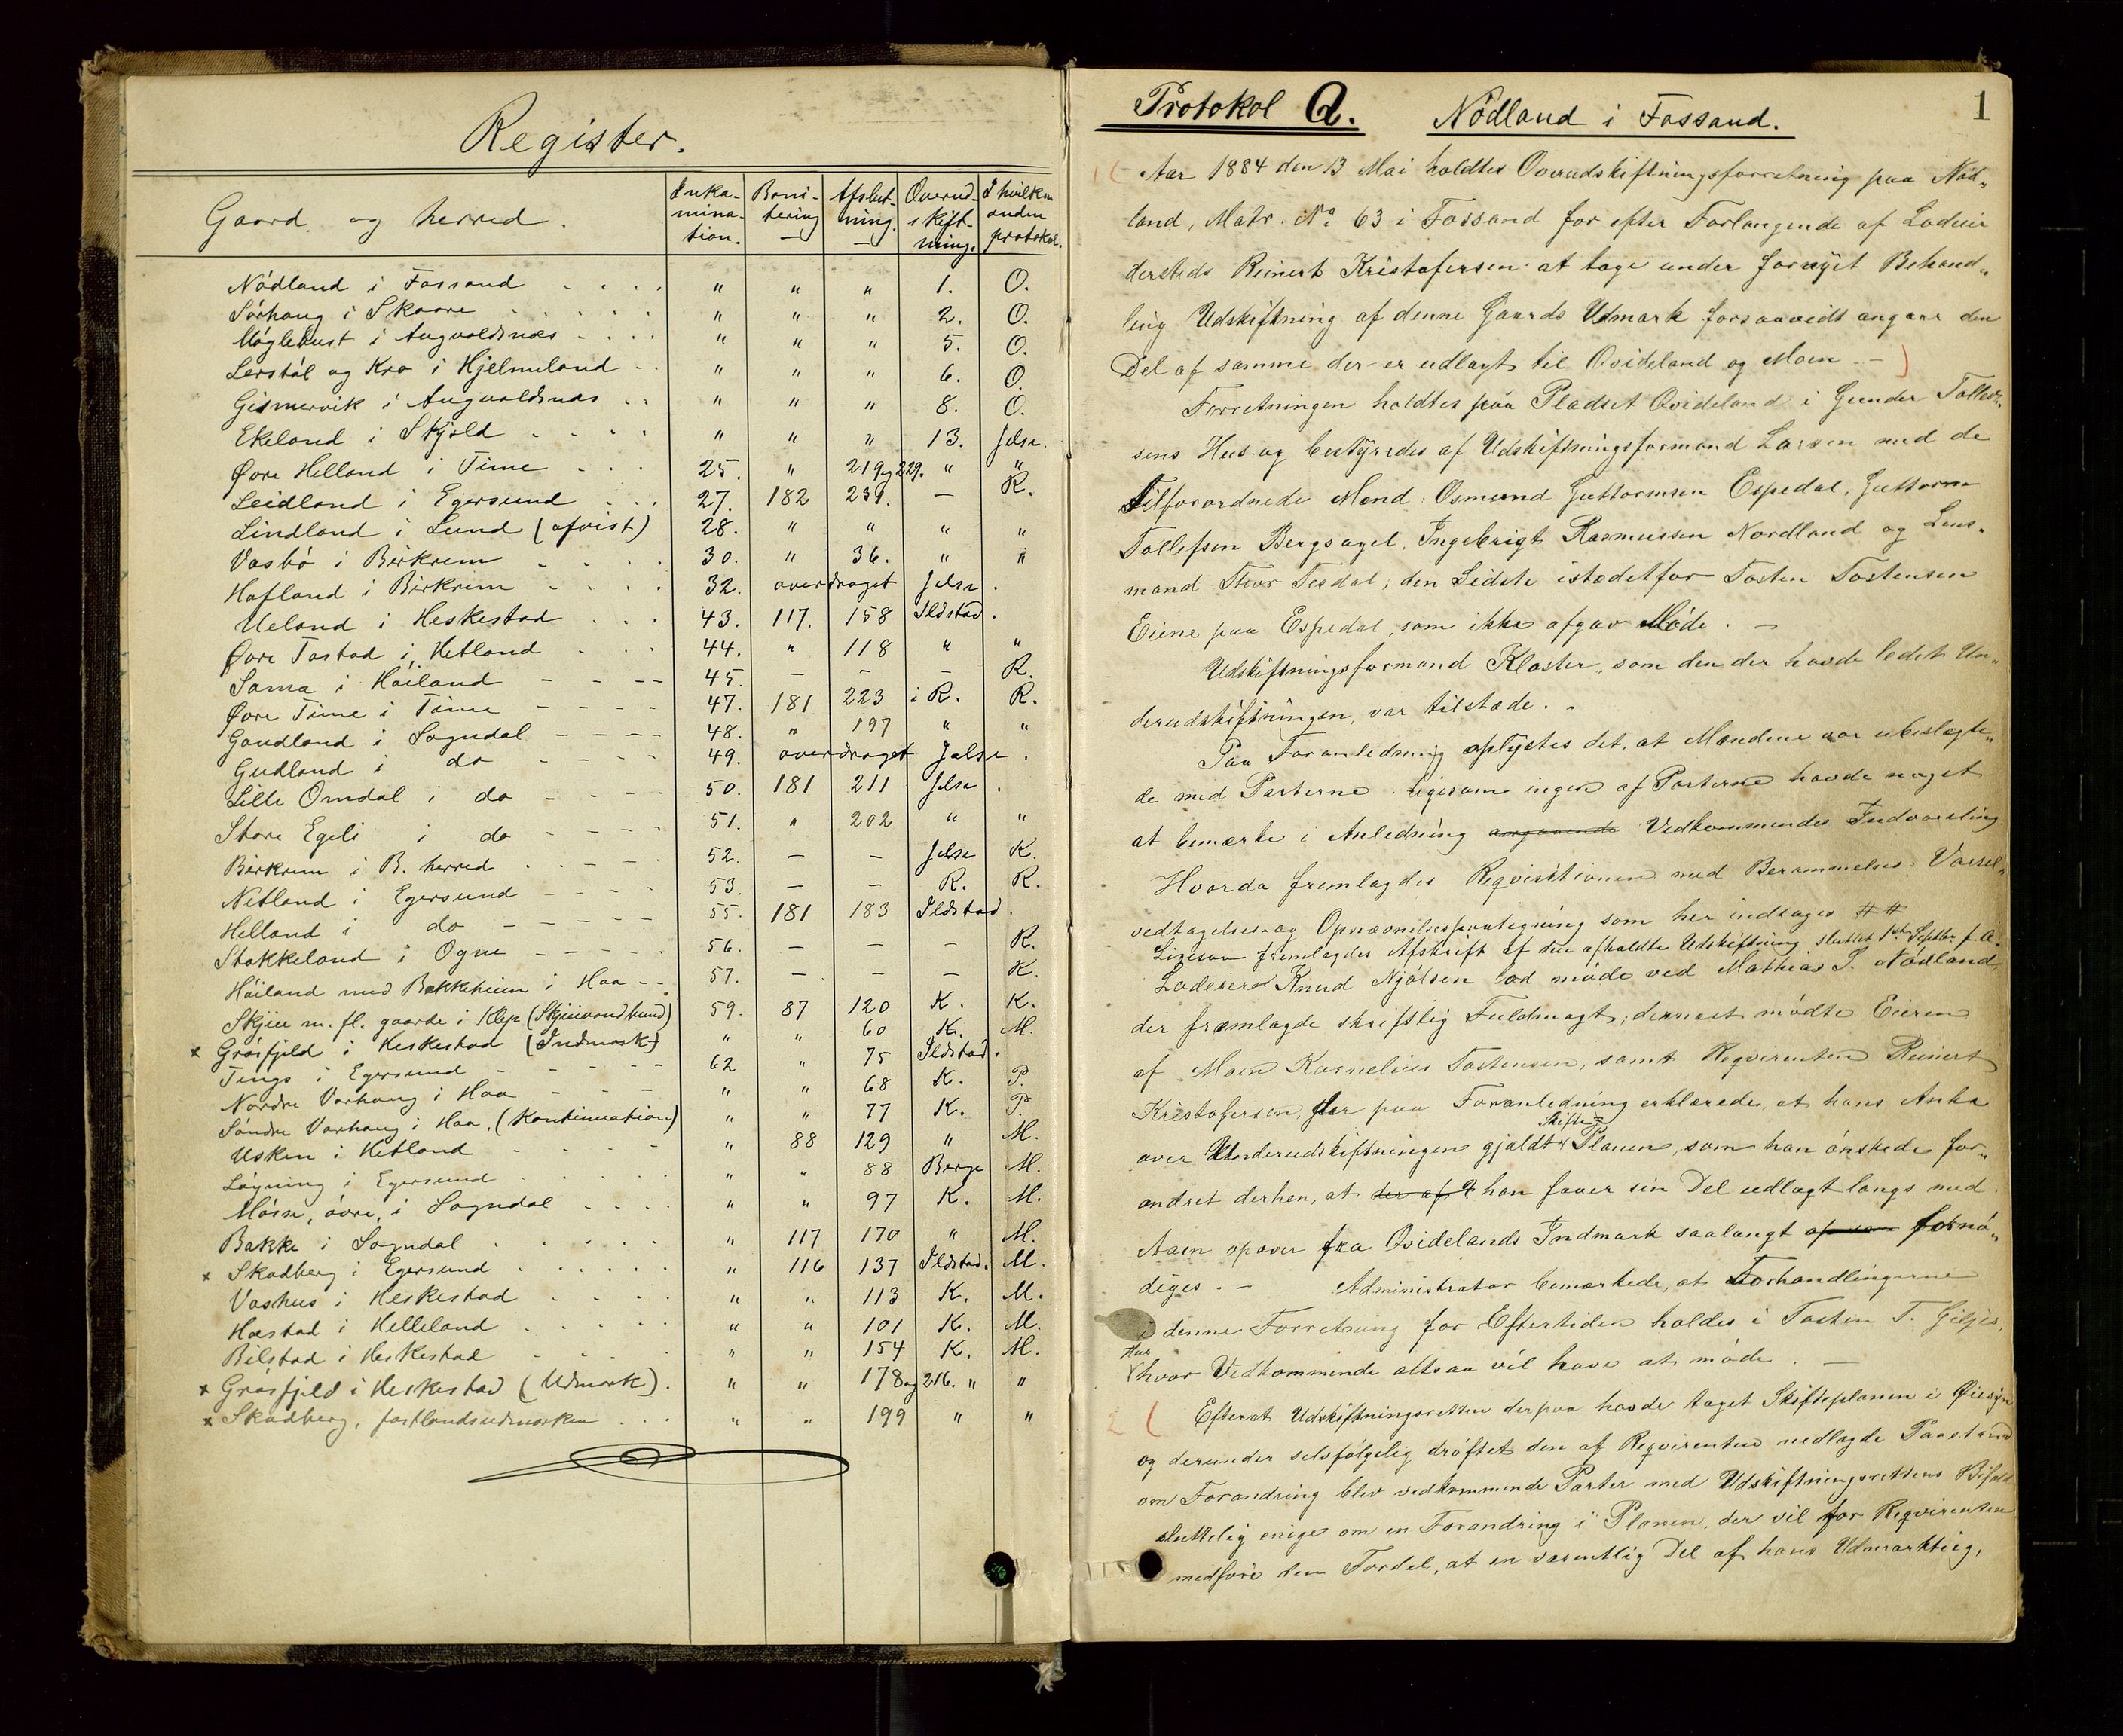 Register.
Gaard og herred. Inka- Boni- Afslut- Overud- I hvilken
mina- tering ning. skift- anden
tion. — — ning. protokol.
Nödland i Fossand . . . . " " " 1. O.
Sörhaug i Skaare . . . . . " " " 2. O.
Möglebust i Augvaldsnæs . . . . " " " 5. O.
Lerstöl og Kro i Hjelmeland . . " " " 6. O.
Gismervik i Augvaldsnæs . . " " " 8. O.
Ekeland i Skjold . . . . " " " 13. Jelsa.
Øvre Helland i Time . . . 25. " 219 og 229. " "
Leidland i Egersund . . . 27. 182 231. — R.
Lindland i Lund (afvist) 28. " " " "
Vasbö i Birkrem . . . . 30. " 36. " "
Hofland i Birkrem . . . . 32. overdraget Jelsa.
Ueland i Heskestad . . . 43. 117. 158 Ildstad.
Øvre Tastad i Hetland . . . 44. " 118 " "
Soma i Höiland — — — — 45. — — — R.
Øvre Time i Time — — — — 47. 181 223 i R. R.
Gaudland i Sogndal — — — — 48. " 197 " "
Gudland i do — — — — 49. overdraget Jelsa.
Lille Omdal i do — — — — 50. 181 211 Jelsa.
Store Egeli i do — — — — 51. " 202 " "
Birkrem i B. herred . . — — . 52. — — Jelsa K.
Netland i Egersund — — — — 53. — — R. R.
Helland i do — — — — 55. 181 183 Ildstad.
Stokkeland i Ogne — — — — 56. — — — R.
Höiland med Bakkeheien i Haa — — . 57. — — — K.
Skjen m. fl. gaarde i Klep 59. 87 120 K. K.
x Grösfjeld i Heskestad (Indmark) " " 60 K. M.
Tengs i Egersund — — — — — 62 " 75 Ildstad.
Nordre Varhaug i Haa — — — " " 68 K. P.
Söndre Varhaug i Haa. (Kontinuation) " " 77 K. P.
Usken i Hetland . . . . . " 88 129 " M.
Löyning i Egersund . . . . . " " 88 Berge M.
Mösse, övre, i Sogndal . . . . " " 97 K. M.
Bakke i Sogndal . . . . . " 117 170 " M.
x Skadberg i Egersund . . . . . " 116 137 Ildstad. M.
Vashus i Heskestad . . . . " " 113 K. M.
Hæstad i Helleland . . . . . " " 101 K. M.
Bilstad i Heskestad . . . . " " 154 K. M.
x Grösfjeld i Heskestad (Udmark). " " 178 og 216. " "
x Skadberg, fastlandsudmarken . . . " " 199 " "
Protokol Q. Nödland i Fossand. 1
Aar 1884 den 13 Mai holdtes Overudskiftningsforretning paa Nød„
land, Matr. No 63 i Fossand for efter Forlangende af Lodeier
dersteds Reinert Kristofersen at tage under fornyet Behand„
ling Udskiftning af denne Gaards Udmark forsaavidt angaar den
Del af samme der er udlagt til Qvideland og Moen. —
Forretningen holdtes paa Pladset Qvideland i Gunder Tollef„
sens Hus og bestyredes af Udskiftningsformand Larsen med de
Tilforordnede Mænd Osmund Guttormsen Espedal, Guttorm
Tollefsen Bergsagel, Ingebrigt Rasmussen Nordland og Lens„
mand Thor Tesdal; den Sidste istedetfor Tosten Tostensen
Eiene paa Espedal, som ikke afgav Möde. —
Udskiftningsformand Kloster, som den der havde ledet Un„
derudskiftningen, var tilstede. -
Paa Foranledning oplystes det, at Mændene var ubeslægte„
de med Parterne ligesom ingen af Parterne havde noget
at bemærke i Anledning angaaende Vedkommendes Indvarsling
Hvorda fremlagdes Reqvisitionen med Berammelses Varsel„
vedtagelses og Opnævnelsespaategning som her indtages ##
Ligesaa fremlagdes Afskrift af den afholdte Udskiftning sluttet 1ste Septbr f. A.
Lodeieren Knud Njölsen lod møde ved Mathias S. Nödland,
der fremlagde skriftlig Fuldmagt; dernæst mødte Eieren
af Moen Kornelius Tostensen, samt Reqvirenten Reinert
Kristofersen, der paa Foranledning erklærede, at hans Anke
Skifte
over Underudskiftningen gjaldt Planen, som han ønskede for„
andret derhen, at der af Q han faaer sin Del udlagt langs med
Aaen opover fra Qvidelands Indmark saalangt fornö„
diges. — Administrator bemærkede, at Forhandlingerne
i denne Forretning for Eftertiden holdes i Tosten T. Giljes
Hus
hvor Vedkommende altsaa vil have at møde. —
2 ( Efterat Udskiftningsretten derpaa havde taget Skifteplanen i Øiesyn
og derunder selvfølgelig drøftet den af Reqvirenten nedlagde Paastand
om Forandring blev vedkommende Parter med Udskiftningsrettens Bifald
sluttelig enige om en Forandring i Planen, der vil for Reqvirenten
medføre den Fordel, at en væsentlig Del af hans Udmarkteig,